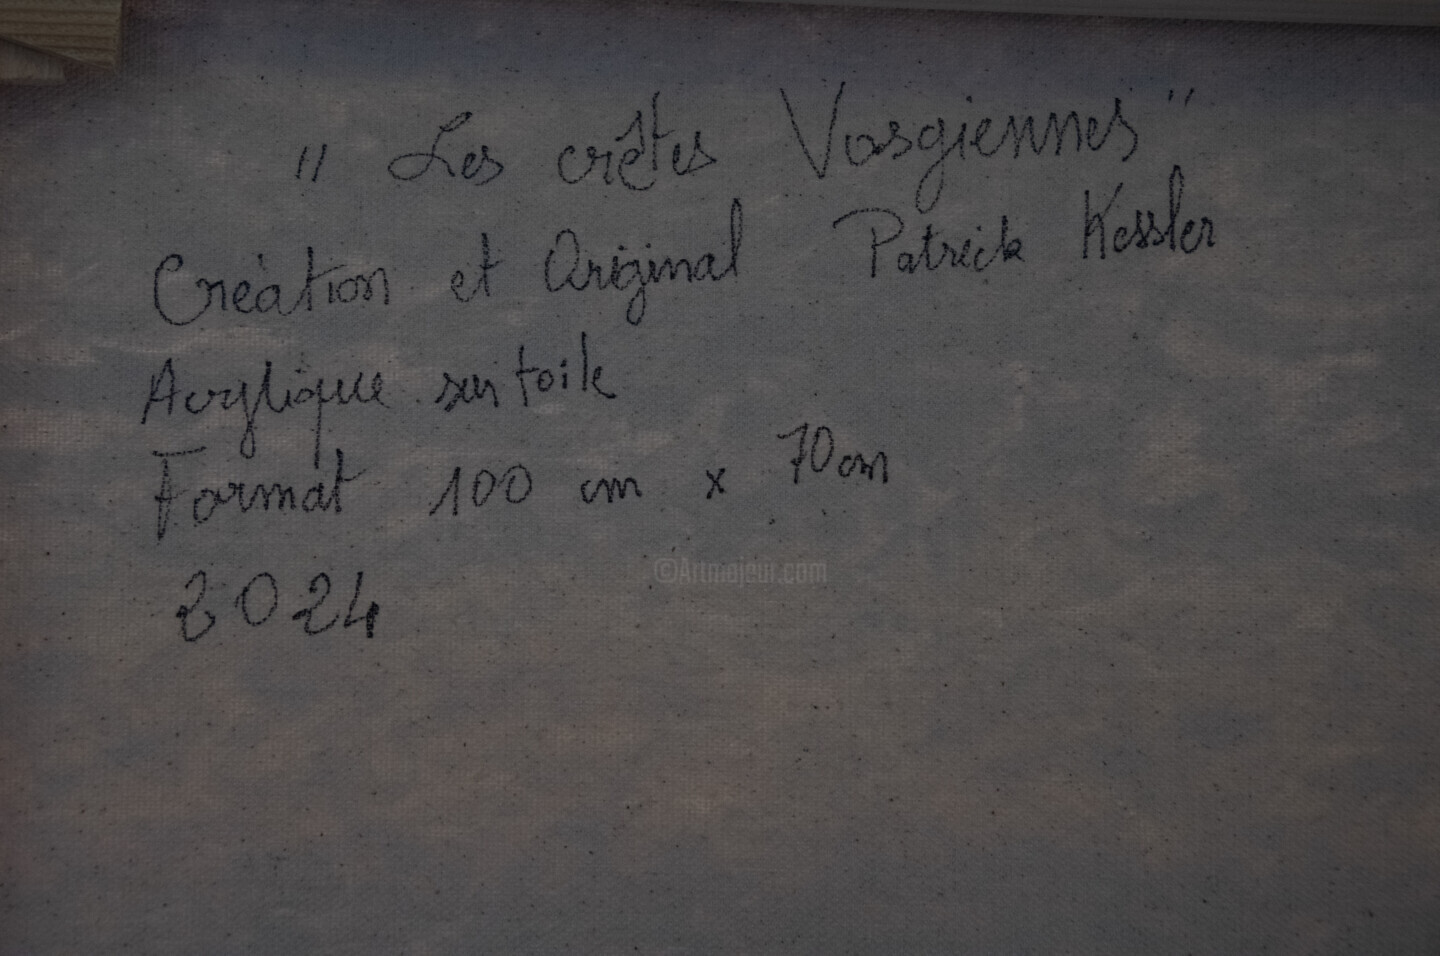 " Les crêtes Vosgiennes "
Création et Original Patrick Kessler
Acrylique sur toile
Format 100 cm x 70 cm
©Artmajeur.com
2024